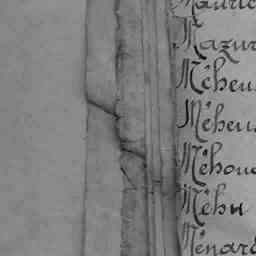 Mauric
Mazur
Méheu
Méheu
Méhou
Méhu
Ménard